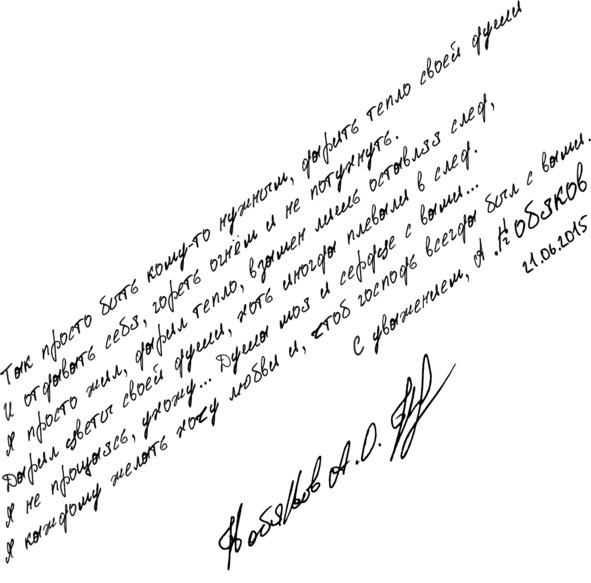 Так просто быть кому-то нужным, дарить тепло своей души
И отдавать себя, гореть огнём и не потухнуть.
Я просто жил, дарил тепло, взамен лишь оставляя след,
Дарил цветы своей души, хоть иногда плевали в след.
Я не прощаясь, ухожу... Душа моя и сердце с вами...
Я каждому желать хочу любви и, чтоб господь всегда был с вами.
С уважением, А. Кобяков
21.06.2015
Кобяков А.О.